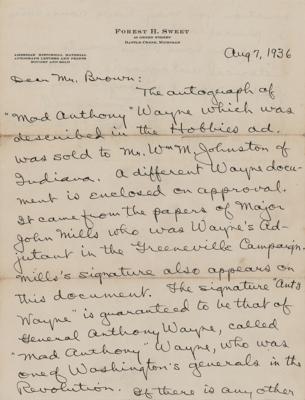 FOREST H. SWEET
BATTLE CREEK, MICHIGAN
AMERICAN HISTORICAL MATERIAL
AUTOGRAPH LETTERS AND PRINTS
BOUGHT AND SOLD
Aug 7, 1936
Dear Mr. Brown:
The autograph of
"Mad Anthony" Wayne which was
described in the Hobbies ad.
was sold to Mr. Wm M. Johnston of
Indiana. A different Wayne docu-
ment is enclosed on approval.
It came from the papers of Major
John Mills who was Wayne's Ad-
jutant in the Greeneville Campaign.
Mills's signature also appears on
this document. The signature "Anty
Wayne" is guaranteed to be that of
General Anthony Wayne, called
"Mad Anthony" Wayne, who was
one of Washington's generals in the
Revolution. If there is any other